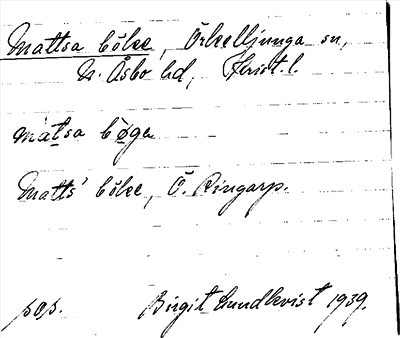 Mattsa böke, Örkelljunga sn,
N. Åsbo hd, Krist. l.
matsa bøga
Matts' böke, Ö. Ringarp.
pop. Birgit Lundkvist 1939.